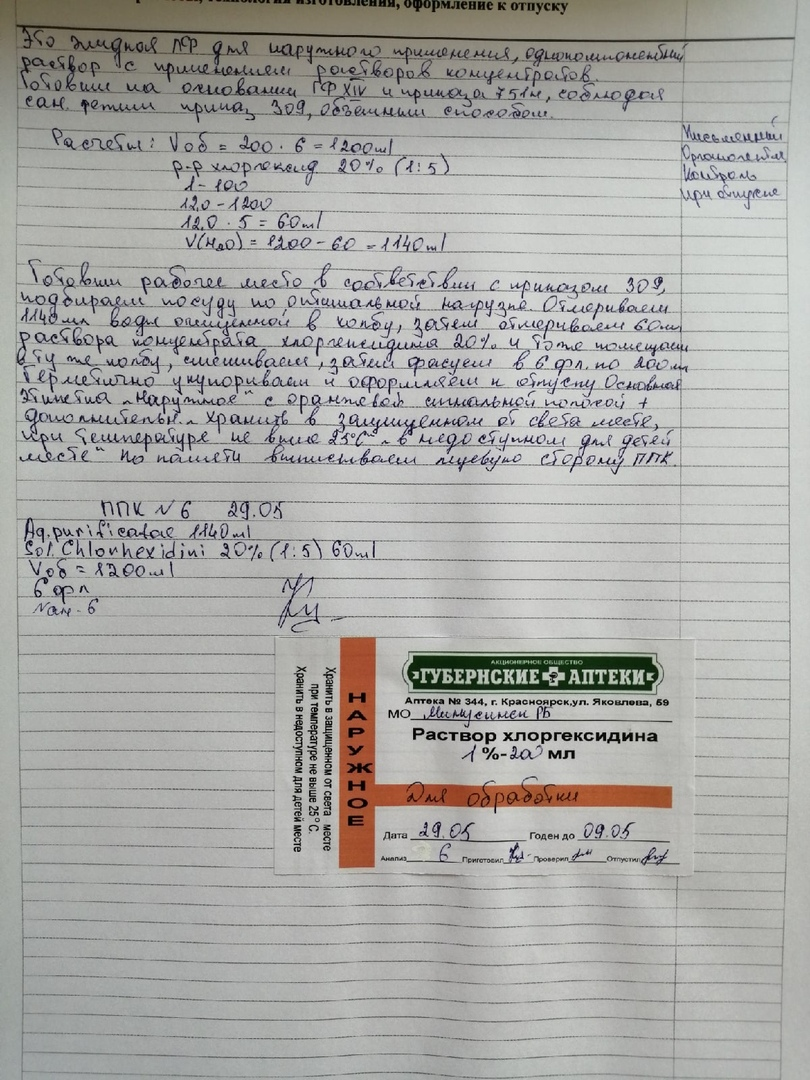 технология изготовления, оформление к отпуску
Это жидкая ЛФ для наружного применения, однокомпонентный
раствор с применением растворов концентратов.
Готовим на основании ГФ XIV и приказа 751н, соблюдая
сан. режим приказ 309, объемным способом.
Расчеты: Vоб = 200 · 6 = 1200ml
р-р хлоргексид 20% (1:5)
1 - 100
12.0 - 1200
12.0 · 5 = 60ml
V(H₂O) = 1200 - 60 = 1140ml
Письменный
Органолептич
Контроль
при отпуске
Готовим рабочее место в соответствии с приказом 309,
подбираем посуду по оптимальной нагрузке. Отмериваем
1140мл воды очищенной в колбу, затем отмериваем 60мл
раствора концентрата хлоргексидина 20% и тоже помещаем
в ту же колбу, смешиваем, затем фасуем в 6 фл. по 200мл
Герметично укупориваем и оформляем к отпуску Основная
этикетка „Наружное" с оранжевой сигнальной полосой +
дополнительн. „Хранить в защищенном от света месте,
при температуре не выше 25°C" „в недоступном для детей
месте" По памяти выписываем лицевую сторону ППК.
ППК N 6 29.05
Aq. purificatae 1140ml
Sol. Chlorhexidini 20% (1:5) 60ml
Vоб = 1200ml
6 фл
№ан. 6
АКЦИОНЕРНОЕ ОБЩЕСТВО
"ГУБЕРНСКИЕ АПТЕКИ"
Аптека № 344, г. Красноярск,ул. Яковлева, 59
МО Минусинск РБ
Раствор хлоргексидина
1 %-200 мл
Для обработки
Дата 29.05 Годен до 09.05
Анализ 6 Приготовил Проверил Отпустил
НАРУЖНОЕ
Хранить в защищенном от света месте
при температуре не выше 25° С.
Хранить в недоступном для детей месте